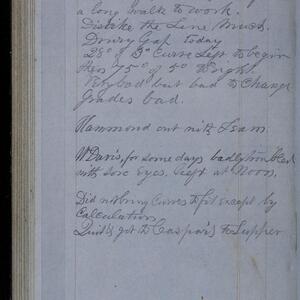 a long walk to work.
Dislike the Line Much.
Driving Gap today
28° of 3° Curve Left to begin
then 75° of 5° to Right.
Very bad but bad to Change
Grades bad.
Hammond out with Team.
W Davis, for some days badly troubled
with Sore Eyes. Left at Noon.
Did not bring Curves to fit except by
Calculation
Quit & got to Caspar's to Supper